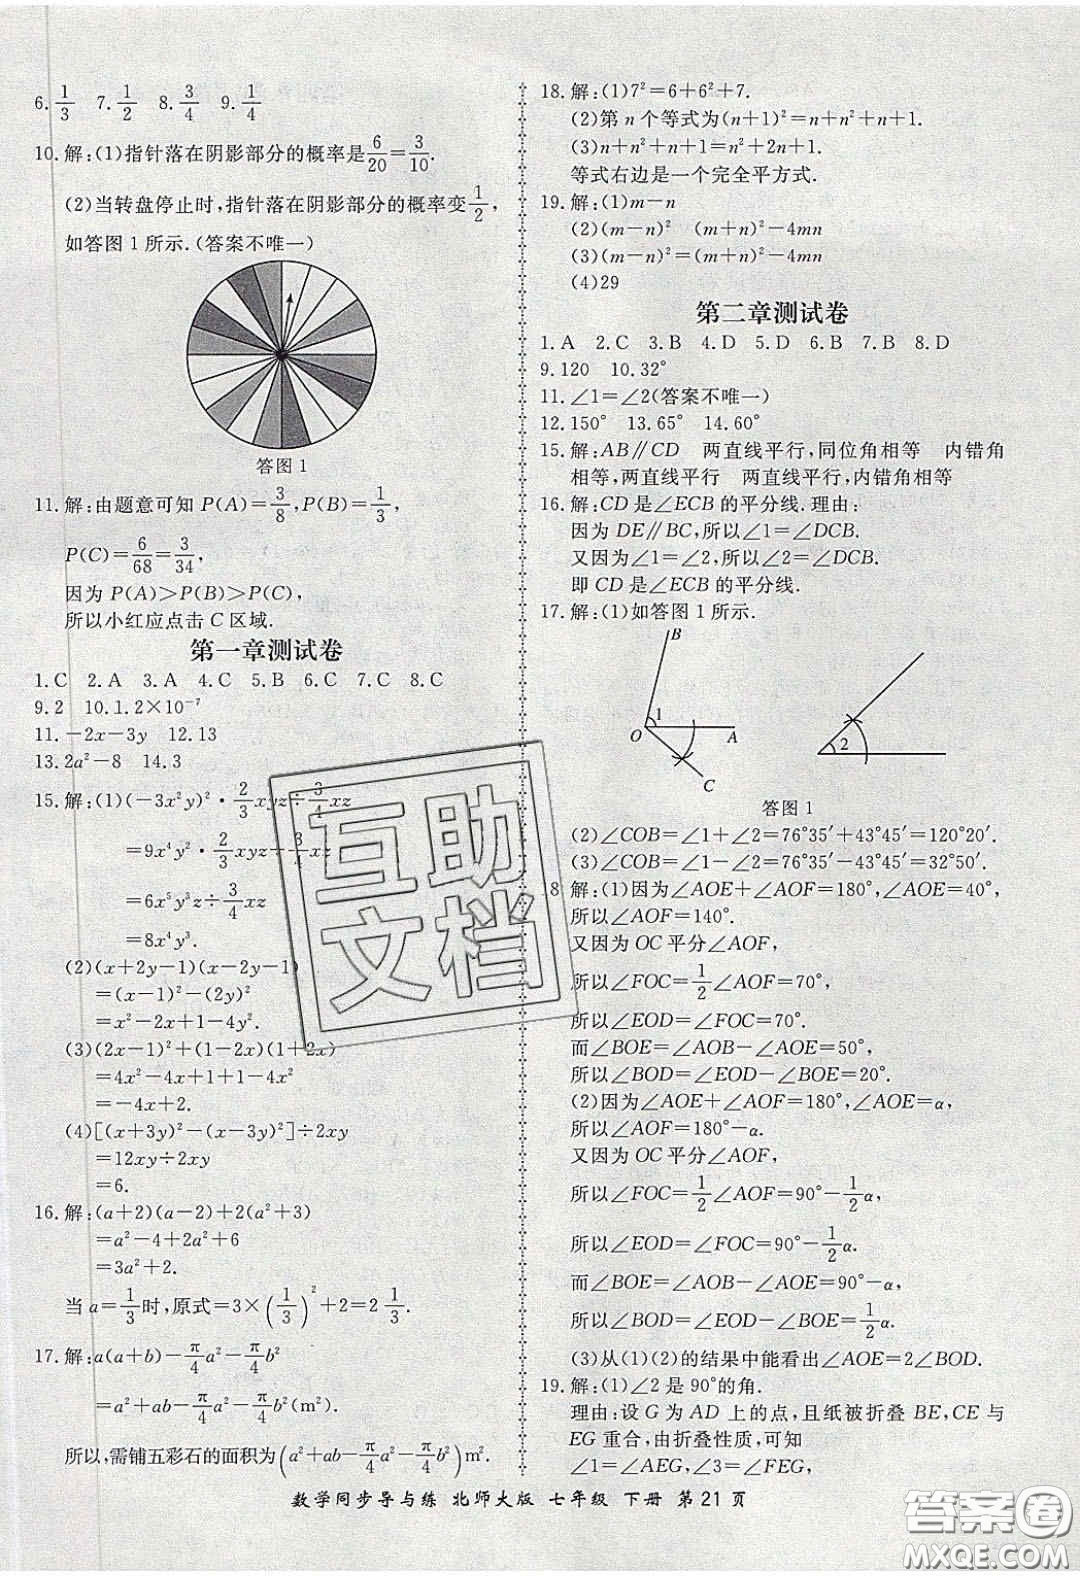 6. 1/3　7. 1/2　8. 3/4　9. 1/4
10. 解:(1)指针落在阴影部分的概率是 6/20 = 3/10.
(2)当转盘停止时,指针落在阴影部分的概率变 1/2,
如答图 1 所示.(答案不唯一)
答图 1
11. 解:由题意可知 P(A)=3/8, P(B)=1/3,
P(C)=6/68=3/34,
因为 P(A)>P(B)>P(C),
所以小红应点击 C 区域.
第一章测试卷
1.C　2.A　3.A　4.C　5.B　6.C　7.C　8.C
9.2　10.1.2×10⁻⁷
11.-2x-3y　12.13
13.2a²-8　14.3
15. 解:(1)(-3x²y)²·2/3xyz÷3/4xz
=9x⁴y²·2/3xyz÷3/4xz
=6x⁵y³z÷3/4xz
=8x⁴y³.
(2)(x+2y-1)(x-2y-1)
=(x-1)²-(2y)²
=x²-2x+1-4y².
(3)(2x-1)²+(1-2x)(1+2x)
=4x²-4x+1+1-4x²
=-4x+2.
(4)[(x+3y)²-(x-3y)²]÷2xy
=12xy÷2xy
=6.
16. 解:(a+2)(a-2)+2(a²+3)
=a²-4+2a²+6
=3a²+2.
当 a=1/3时,原式=3×(1/3)²+2=2 1/3.
17. 解:a(a+b)-π/4a²-π/4b²
=a²+ab-π/4a²-π/4b²(m²).
所以,需铺五彩石的面积为(a²+ab-π/4a²-π/4b²)m².
18. 解:(1)7²=6+6²+7.
(2)第 n 个等式为(n+1)²=n+n²+n+1.
(3)n+n²+n+1=n²+2n+1=(n+1)².
等式右边是一个完全平方式.
19. 解:(1)m-n
(2)(m-n)²　(m+n)²-4mn
(3)(m-n)²=(m+n)²-4mn
(4)29
第二章测试卷
1.A　2.C　3.B　4.D　5.D　6.B　7.B　8.D
9.120　10.32°
11.∠1=∠2(答案不唯一)
12.150°　13.65°　14.60°
15. 解:AB∥CD　两直线平行,同位角相等　内错角
相等,两直线平行　两直线平行,内错角相等
16. 解:CD 是∠ECB 的平分线.理由:
因为 DE∥BC,所以∠1=∠DCB.
又因为∠1=∠2,所以∠2=∠DCB.
即 CD 是∠ECB 的平分线.
17. 解:(1)如答图 1 所示.
B
1
O
A
C
2
答图 1
(2)∠COB=∠1+∠2=76°35′+43°45′=120°20′.
(3)∠COB=∠1-∠2=76°35′-43°45′=32°50′.
18. 解:(1)因为∠AOE+∠AOF=180°,∠AOE=40°,
所以∠AOF=140°.
又因为 OC 平分∠AOF,
所以∠FOC=1/2∠AOF=70°,
所以∠EOD=∠FOC=70°.
而∠BOE=∠AOB-∠AOE=50°,
所以∠BOD=∠EOD-∠BOE=20°.
(2)因为∠AOE+∠AOF=180°,∠AOE=α,
所以∠AOF=180°-α.
又因为 OC 平分∠AOF,
所以∠FOC=1/2∠AOF=90°-1/2α,
所以∠EOD=∠FOC=90°-1/2α.
而∠BOE=∠AOB-∠AOE=90°-α,
所以∠BOD=∠EOD-∠BOE=1/2α.
(3)从(1)(2)的结果中能看出∠AOE=2∠BOD.
19. 解:(1)∠2 是 90°的角.
理由:设 G 为 AD 上的点,且纸被折叠 BE,CE 与
EG 重合,由折叠性质,可知
∠1=∠AEG,∠3=∠DEG.
数学同步导与练 北师大版 七年级 下册 第 21 页
互助
文档
答案圈
MXQE.COM